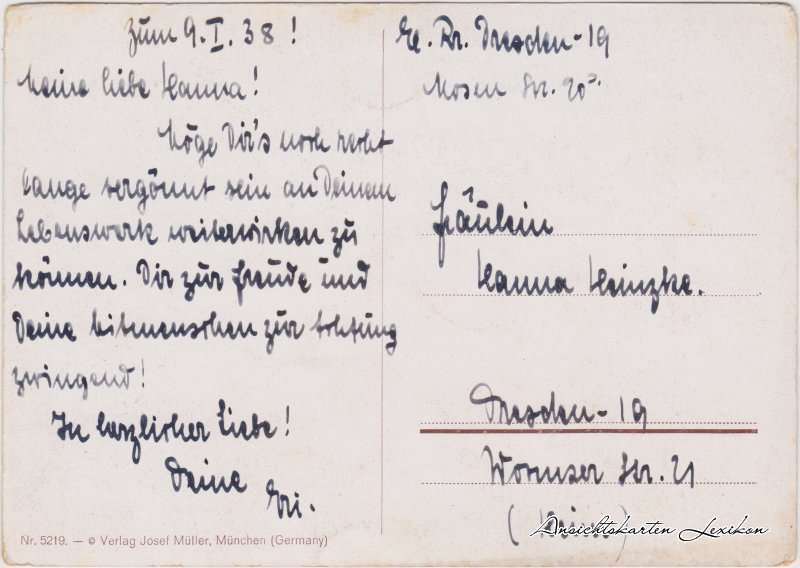 zum 9. I. 38!
Meine liebe Hanna!
Möge Dir's noch recht
lange vergönnt sein an Deinem
Lebenswerk weiterwirken zu
können. Dir zur Freude und
Deine Mitmenschen zur Achtung
zwingend!
In herzlicher Liebe!
Deine
Eri.
Nr. 5219. — © Verlag Josef Müller, München (Germany)
Dresden-19
Mosen Str. 20
Fräulein
Hanna Heinzke.
Dresden-19
Wormser Str. 21
Ansichtskarten Lexikon